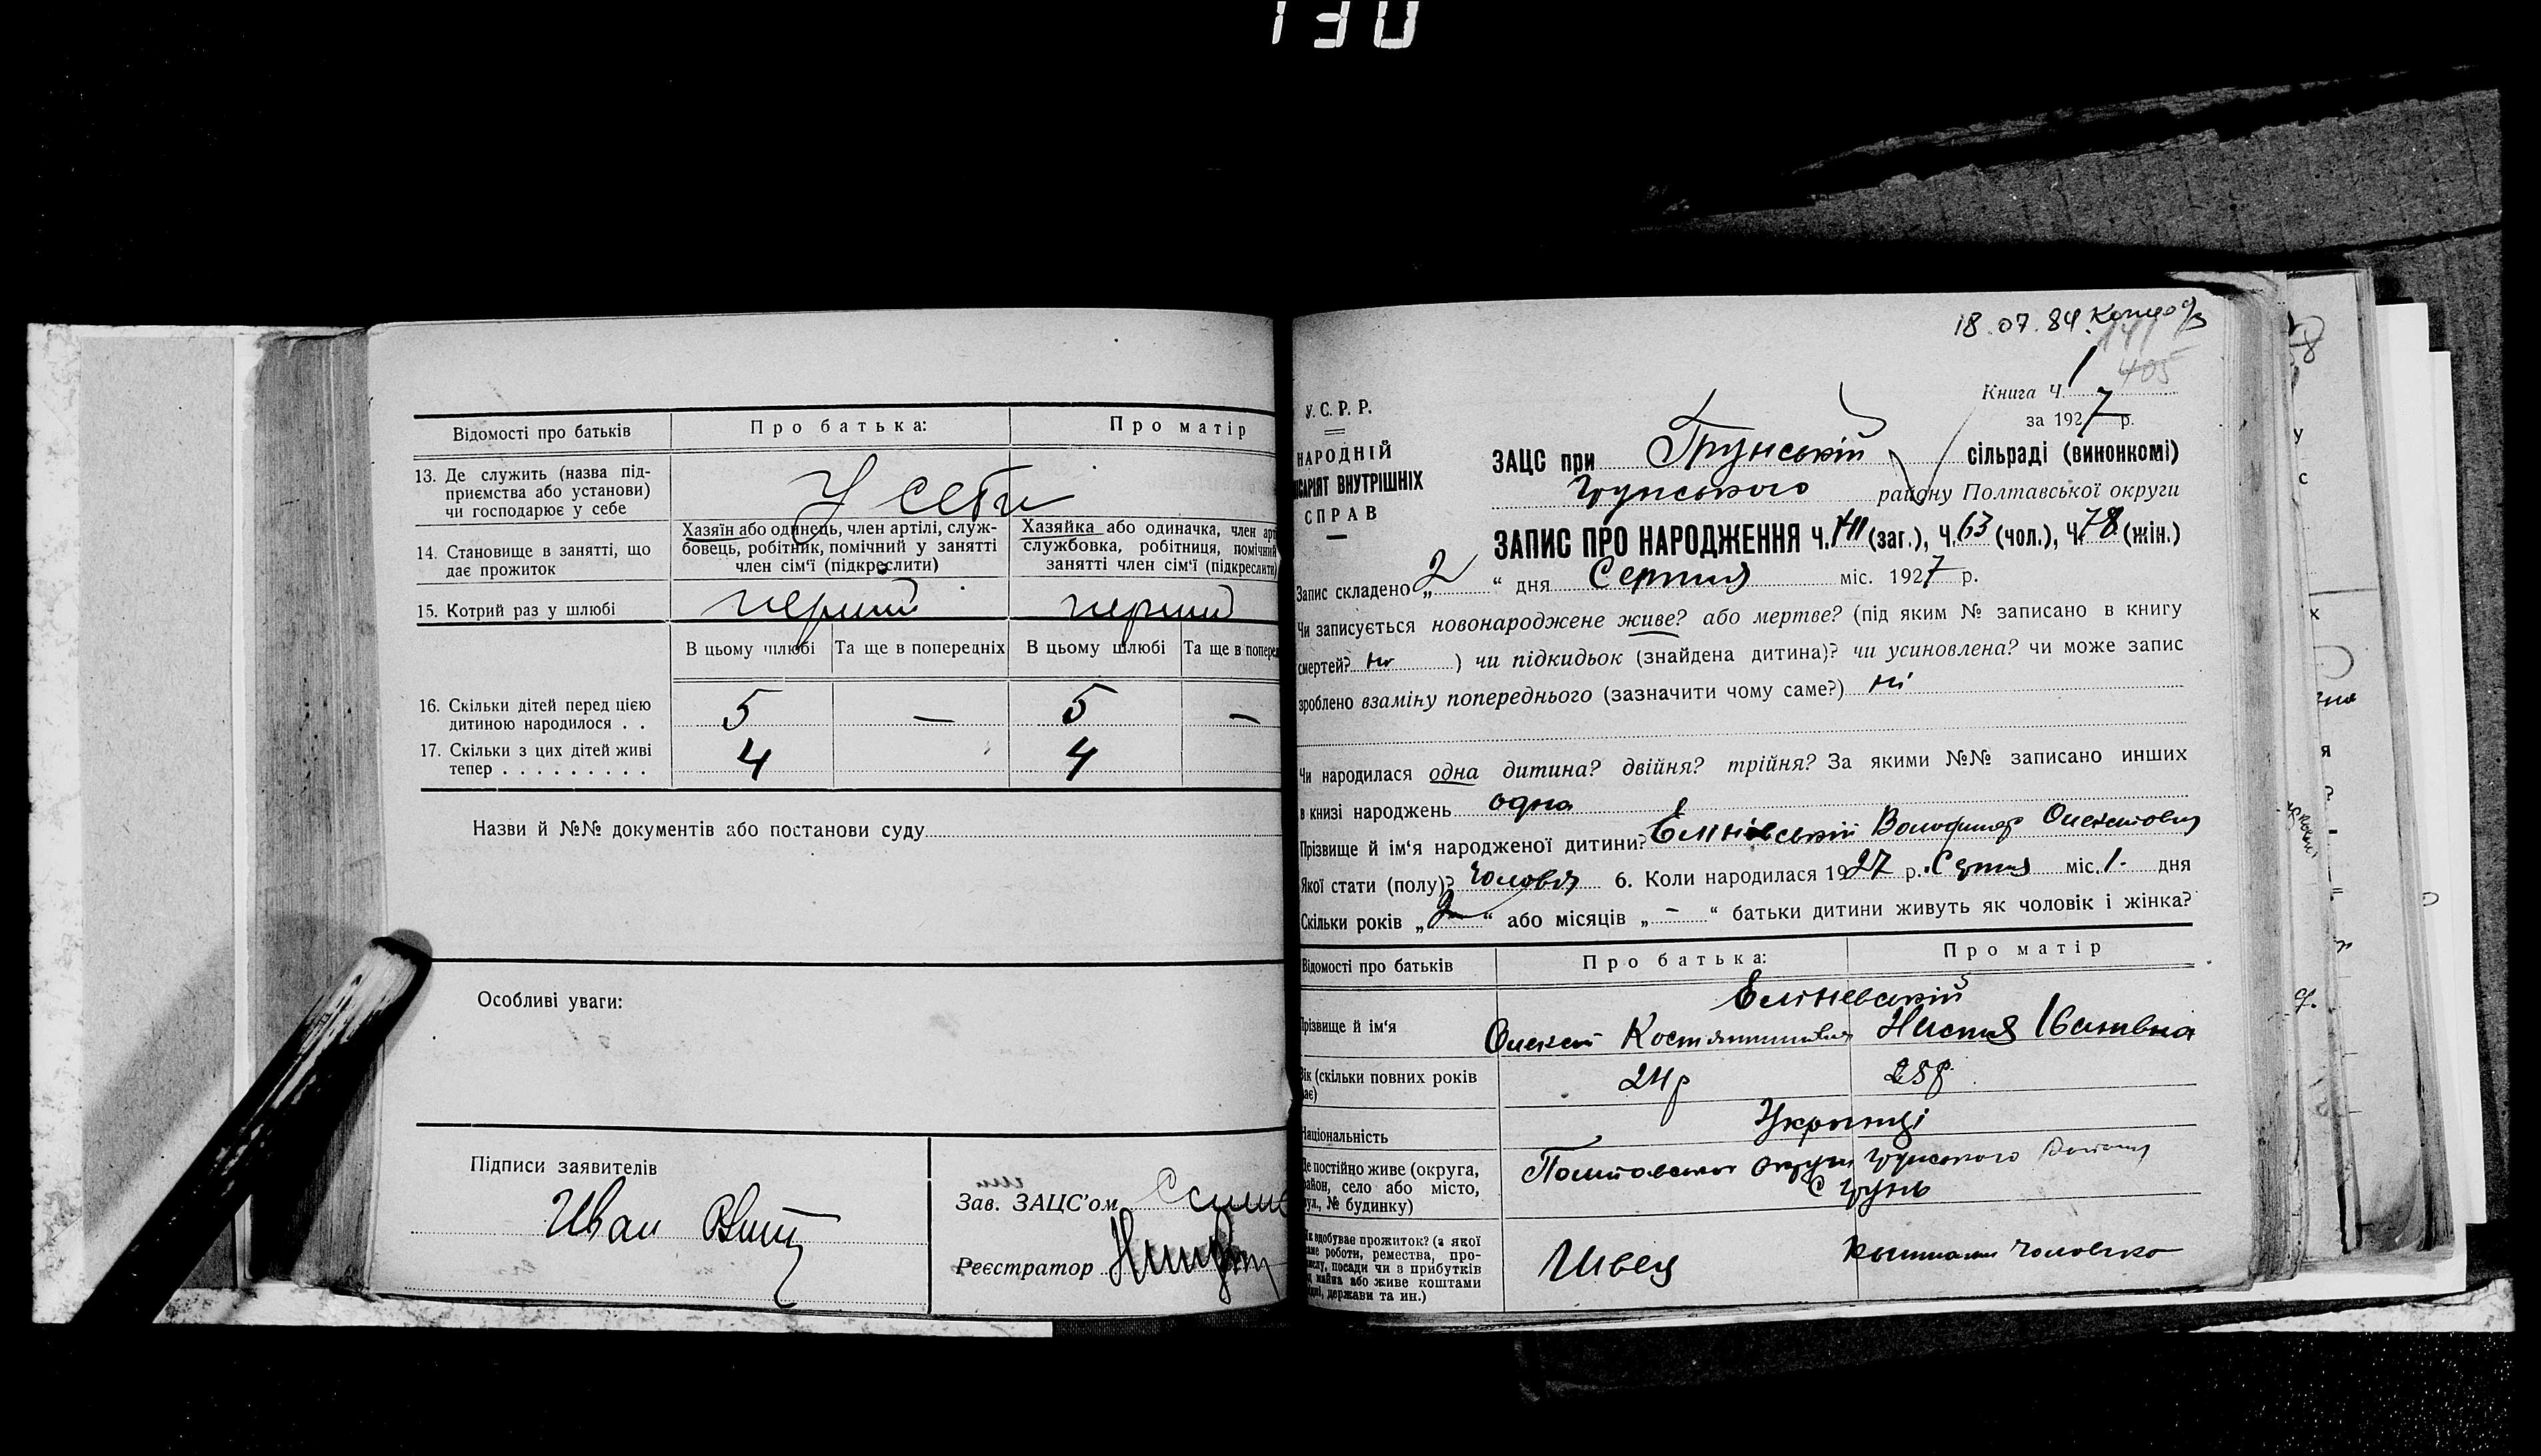 130
Відомості про батьків
Про батька:
Про матір
13. Де служить (назва під-
приємства або установи)
чи господарює у себе
У себе
14. Становище в занятті, що
дає прожиток
Хазяїн або одинець, член артілі, служ-
бовець, робітник, помічний у занятті
член сім'ї (підкреслити)
Хазяйка або одиначка, член арт
службовка, робітниця, помічний
занятті член сім'ї (підкреслити)
15. Котрий раз у шлюбі
перший
перший
В цьому шлюбі
Та ще в попередніх
В цьому шлюбі
Та ще в поперед
16. Скільки дітей перед цією
дитиною народилося . .
5 — 5 —
17. Скільки з цих дітей живі
тепер . . . . . . . . .
4 4
Назви й №№ документів або постанови суду
Особливі уваги:
Підписи заявителів
Иван
Зав. ЗАЦС'ом
Реєстратор
18.07.84.
141
405
Книга Ч. 1
за 1927 р.
У.С.Р.Р.
НАРОДНІЙ
ІСАРІЯТ ВНУТРІШНІХ
СПРАВ
ЗАЦС при Грунській сільраді (виконкомі)
Грунського району Полтавської округи
ЗАПИС ПРО НАРОДЖЕННЯ Ч. 141 (заг.), Ч. 63 (чол.), Ч. 78 (жін.)
Запис складено „2“ дня Серпня міс. 1927 р.
Чи записується новонароджене живе? або мертве? (під яким № записано в книгу
смертей? ні ) чи підкидьок (знайдена дитина)? чи усиновлена? чи може запис
зроблено взаміну попереднього (зазначити чому саме?) ні
Чи народилася одна дитина? двійня? трійня? За якими №№ записано инших
в книзі народжень одна
Прізвище й ім'я народженої дитини? Єліневський Володимир Олексієвич
Якої стати (полу)? Чоловіч 6. Коли народилася 1927 р. Серпня міс. 1 дня
Скільки років „2“ або місяців „-“ батьки дитини живуть як чоловік і жінка?
Відомості про батьків
Про батька:
Про матір
Прізвище й ім'я
Єліневський
Олексій Костянтинович
Настя Іванівна
Вік (скільки повних років
має)
24р
25р
Національність
Українці
Де постійно живе (округа,
район, село або місто,
вул., № будинку)
Полтавської округи Грунського Району
С Грунь
Як здобуває прожиток? (з якої
саме роботи, ремества, про-
мислу, посади чи з прибутків
од майна або живе коштами
рідні, держави та ин.)
Швець
коштами чоловіка